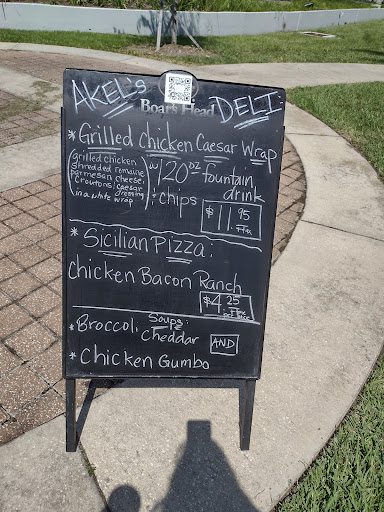 AKEL'S DELI
Boar's Head
* Grilled Chicken Caesar Wrap
(grilled chicken
shredded romaine
parmesan cheese
croutons, caesar dressing
in a white wrap)
w/ 20 oz fountain drink
+ chips
$11.95 +Tax
* Sicilian Pizza:
Chicken Bacon Ranch
$4.25 +Tax
Soups:
* Broccoli Cheddar AND
* Chicken Gumbo